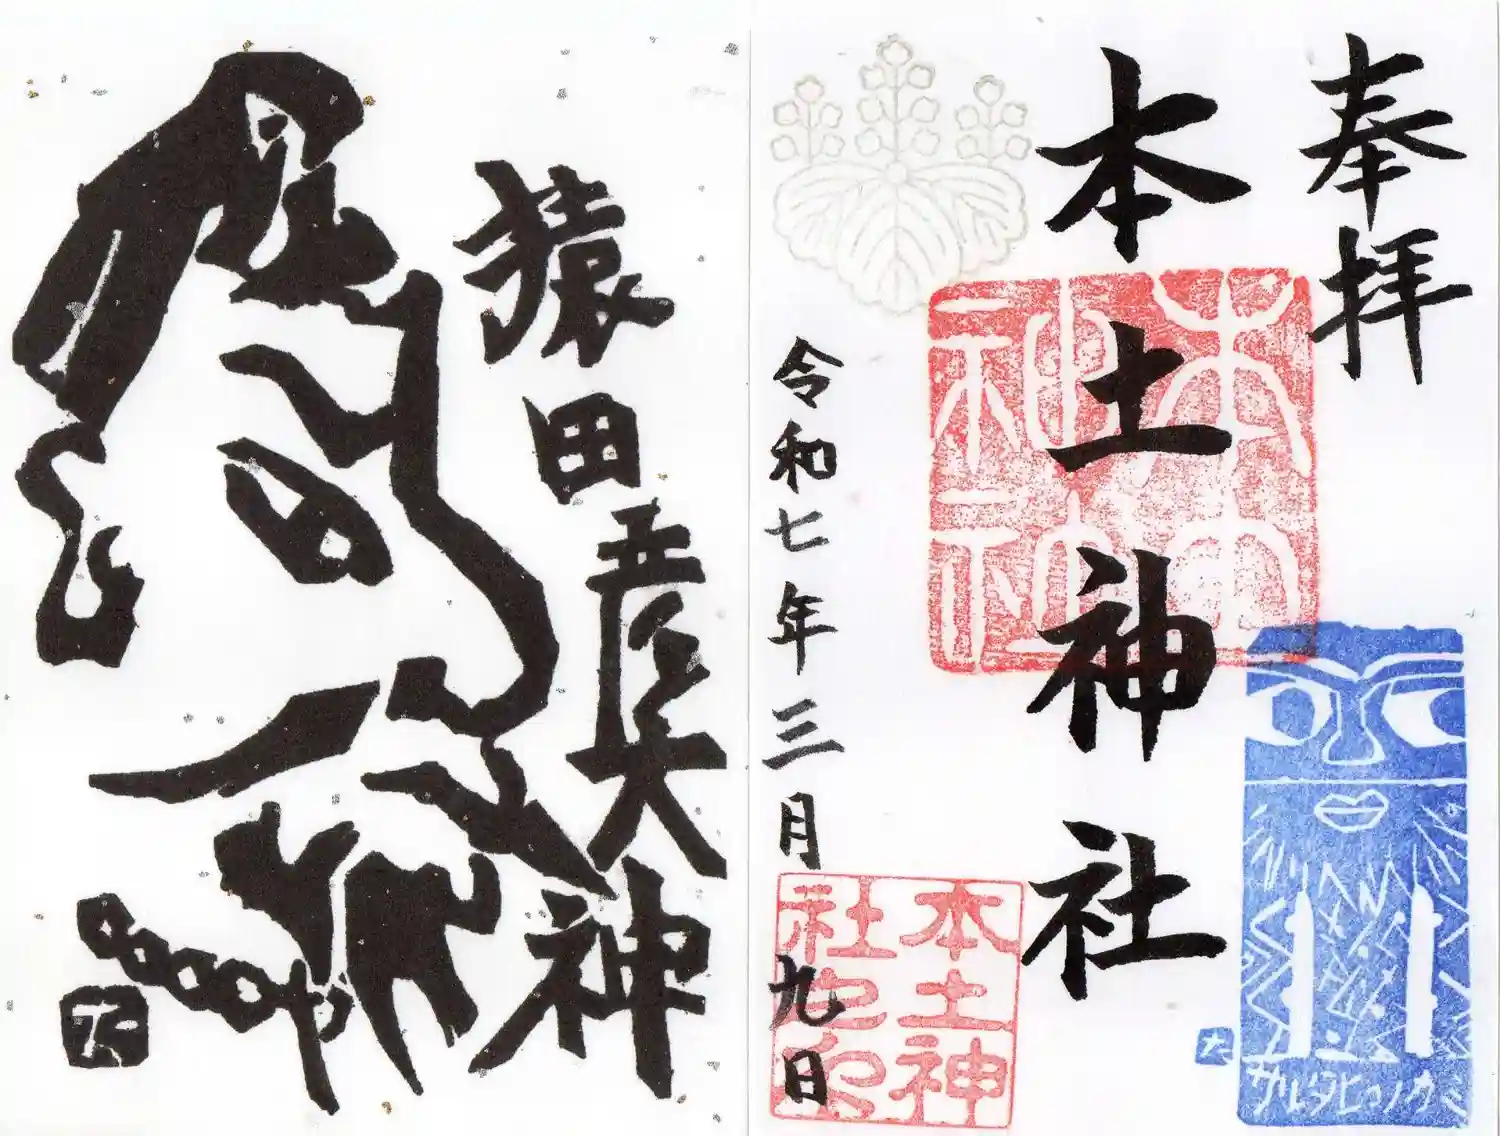 奉拝
本土神社
令和七年三月九日
本土神
社之印
サルタヒコノカミ
猿田彦大神